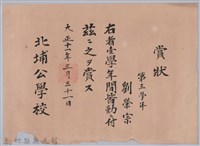 賞狀
第三學年
劉榮宗
右者壹學年間皆勤ニ付
茲ニ之ヲ賞ス
大正十一年三月三十一日
北埔公學校